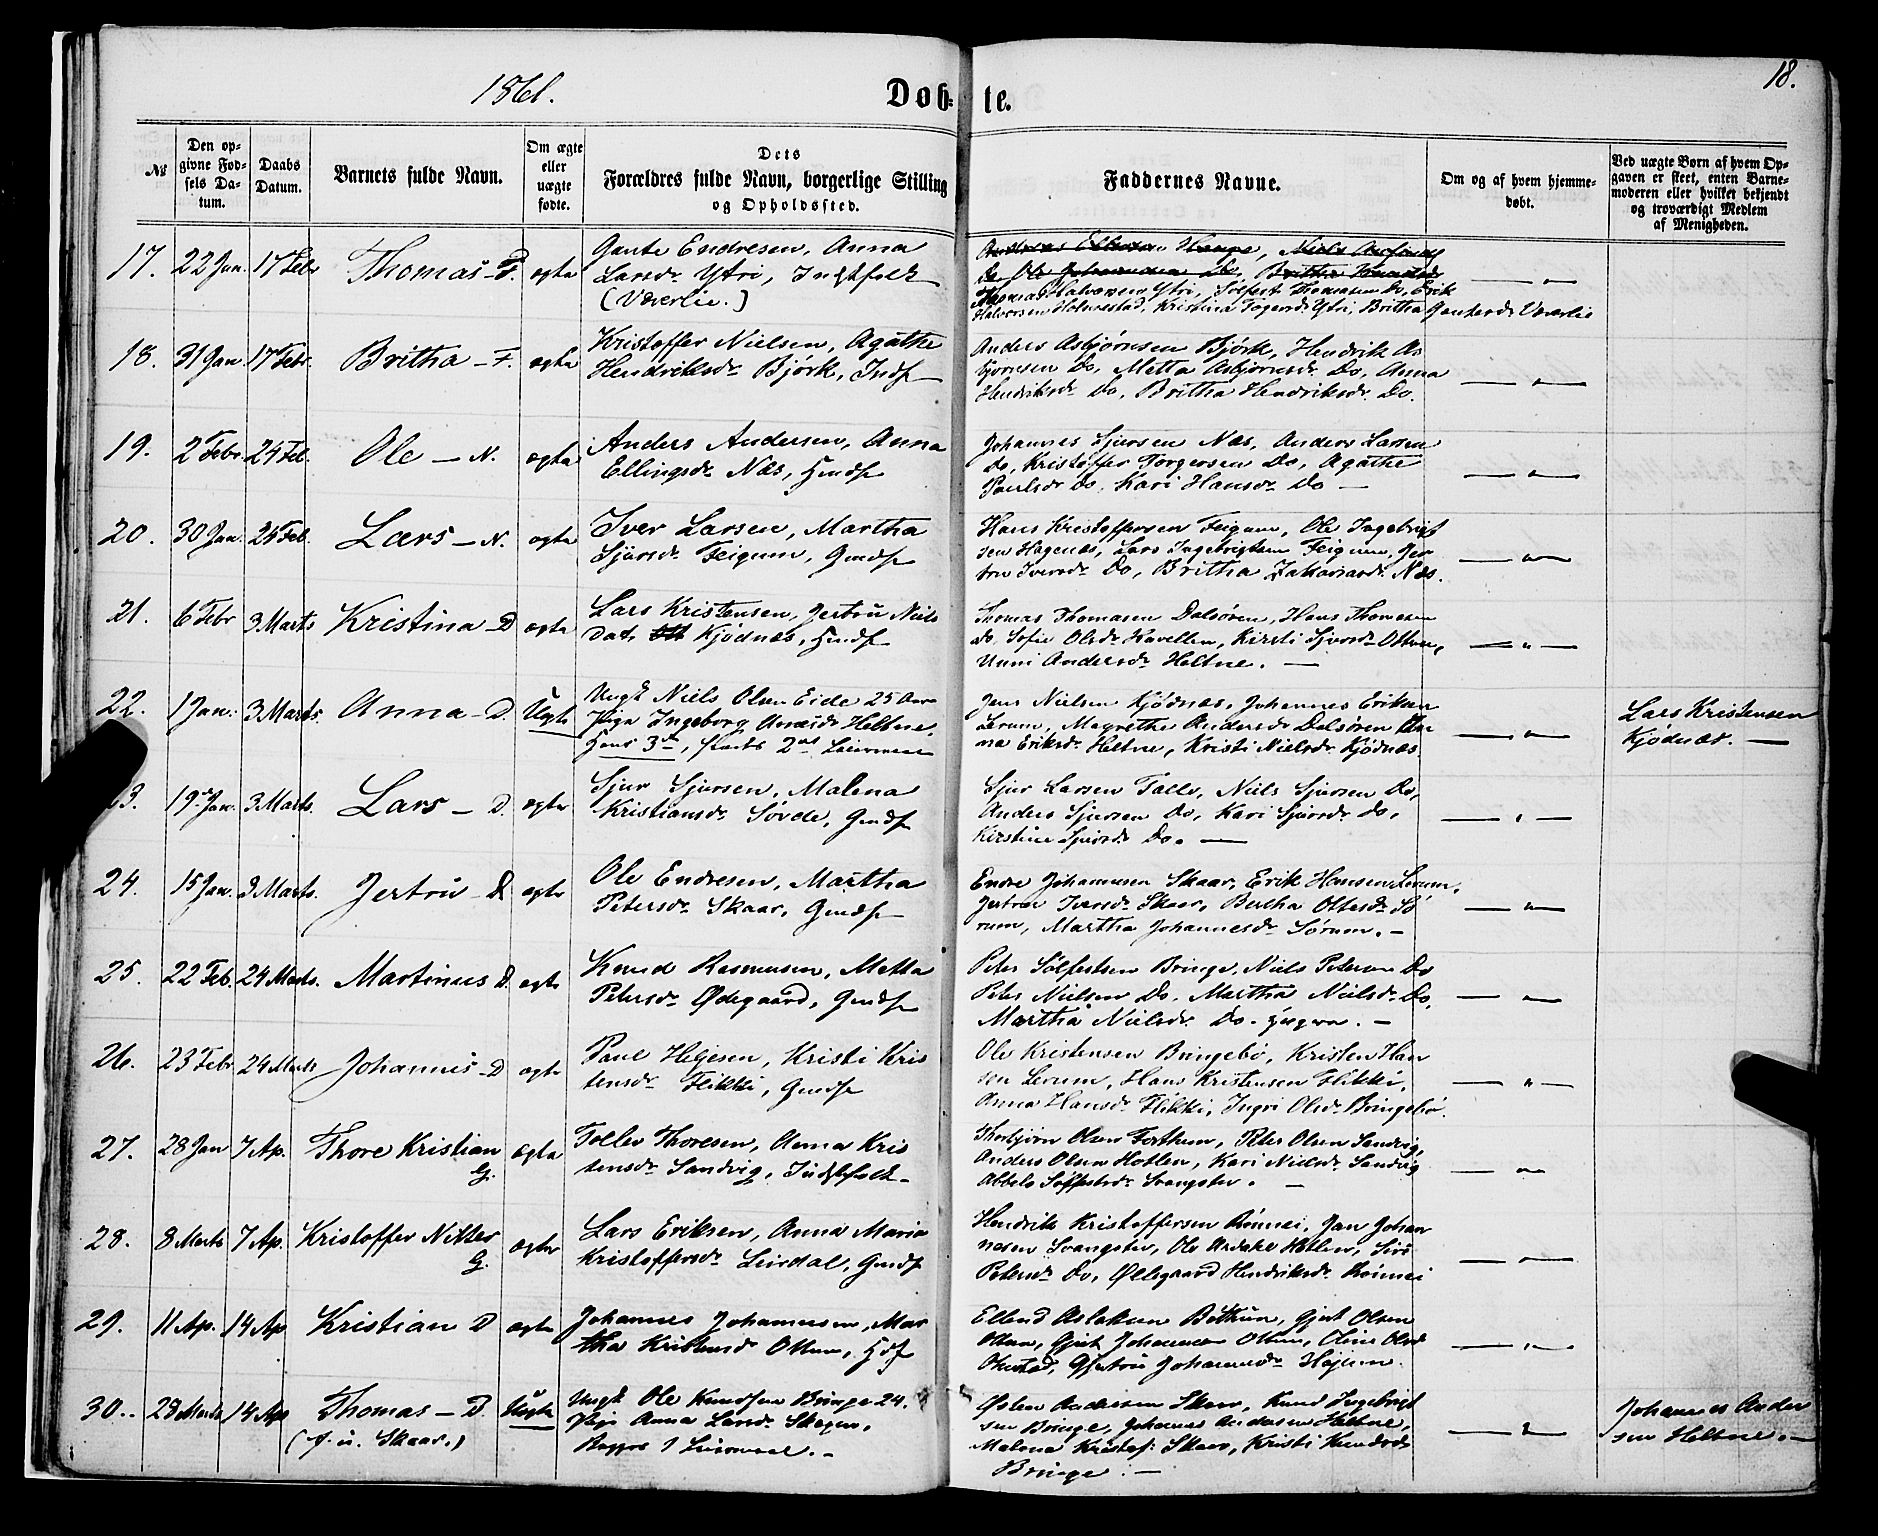 1861.
Døb-te.
18.
№
Den op-
givne Fød-
sels Da-
tum.
Daabs
Datum.
Barnets fulde Navn.
Om ægte
eller
uægte
fødte.
Dets
Forældres fulde Navn, borgerlige Stilling
og Opholdssted.
Faddernes Navne.
Om og af hvem hjemme-
døbt.
Ved uægte Børn af hvem Op-
gaven er skeet, enten Barne-
moderen eller hvilket bekjendt
og troværdigt Medlem
af Menigheden.
17. 22 Jan. 17 Febr Thomas - F. ægte
Gaute Endresen, Anna
Larsdr Ytri, Indstfolk
(Væerlie.)
Do, Ole Johannesen Do, Britha
Thomas Halvorsen Ytri, Solfest Thomasen Do, Erik
Halvorsen Holmestad, Kristina Togersdr Ytri, Britha Gautesdr Væerlie
18. 31 Jan. 17 Febr. Britha - F. ægte
Kristoffer Nielsen, Agathe
Hendriksdr Bjørk, Indf
Anders Asbjørnsen Bjørk, Hendrik As
bjørnsen Do, Metta Asbjørnsdr Do, Anna
Hendriksdr Do, Britha Hendriksdr Do.
19. 2 Febr. 24 Feb. Ole - N. ægte
Anders Andersen, Anna
Ellingsdr Næs, Hmdf
Johannes Sjursen Næs, Anders Larsen
Do, Kristoffer Torgersen Do, Agathe
Paulsdr Do, Kari Hansdr Do -
20. 30 Jan. 24 Feb. Lars - N. ægte
Iver Larsen, Martha
Sjursdr Feigum, Gmdf
Hans Kristoffersen Feigum, Ole Ingebrigt
sen Hagenæs, Lars Ingebrigtsen Feigum, Jer
tru Iversdr Do, Britha Zakariasdr Næs.
21. 6 Febr 3 Marts Kristina - D ægte
Lars Kristensen, Jertru Niels
Datr Kjødnæs, Hmdf
Thomas Thomasen Dalsøren, Hans Thomasen
Do, Sofie Olsdr Kvellen, Kirsti Sjursdr Ottum,
Unni Andersdr Heltne. -
22. 1 Jan. 3 Marts. Anna - D. Uægte
Ungk Niels Olsen Eide 25 Aar
Piga Ingeborg Heltne,
Hans 3die, hendes 2det Leiermaal
Jens Nielsen Kjødnæs, Johannes Eriksen
Lerum, Magrethe Andersdr Dalsøren An
na Eriksdr Heltne, Kristi Nielsdr Kjødnæs.
Lars Kristensen
Kjødnæs. -
23. 19 Jan. 3 Marts. Lars - D. ægte
Sjur Sjursen, Malena
Kristiansdr Søvde, Gmdf
Sjur Larsen Talle, Niels Sjursen Do,
Anders Sjursen Do, Kari Sjursdr Do,
Kirstine Sjursdr Do. -
24. 15 Jan. 3 Marts. Jertru - D. ægte
Ole Endresen, Martha
Petersdr Skaar, Gmdf
Endre Johannesen Skaar, Erik Hansen Lerum,
Jertru Iversdr Skaar, Bertha Ottesdr Sø
rum, Martha Johannesdr Sørum. -
25. 22 Feb. 24 Marts. Martinus D. ægte
Knud Rasmusen, Metta
Petersdr Ødegaard, Gmdf
Peter Solfestsen Bringe, Niels Petersen Do
Peter Nielsen Do, Martha Nielsdr Do,
Martha Nielsdr Do. -
26. 23 Febr 24 Marts Johannes - D ægte
Paul Helgesen, Kristi Kris
tensdr Flikki, Gmdf
Ole Kristensen Bringebø, Kristen Han
sen Lerum, Hans Kristensen Flikki,
Anna Hansdr Flikki, Ingri Olsdr Bringebø.
27. 28 Jan 7 Ap. Thore Kristian
G.
ægte
Tollev Thoresen, Anna Kris
tensdr Sandvig, Indstfolk -
Thorbjørn Olsen Forthun, Peter Olsen Sandvig,
Anders Olsen Hotlen, Kari Nielsdr Sandvig
Abbelo Solfestsdr Svangstu. -
28. 8 Marts 7 Ap. Kristoffer Nitter
G.
ægte
Lars Eriksen, Anna Maria
Kristoffersdr Leirdal, Gmdf
Hendrik Kristoffersen Rønnei, Jan Johan
nesen Svangstu, Ole Hotlen, Siri
Petersdr Do, Øllegaard Hendriksdr Rønnei
29. 11 Ap. 14 Ap Kristian D ægte
Johannes Johannesen, Mar
tha Kristensdr Ottum, Hdf
Ellend Aslaksen Bothun, Gjut Olsen
Ottum, Gjut Johannesen Ottum, Oline Olsdr
Gjertru Johannesdr Høyum.
30. 28 Marts 14 Ap Thomas - D.
(f. u. Skaar.)
Uægte
Ungk Ole Knudsen Bringe 24.
Pige Anna Larsdr Skagen,
Begges 1 Leiermaal. -
Østen Andersen Skaar, Knud Ingebrigt
sen Bringe, Johannes Andersen Heltne,
Malena Kristofr Skaar, Kristi Knudsdr
Bringe. -
Johannes Ander
sen Heltne. -